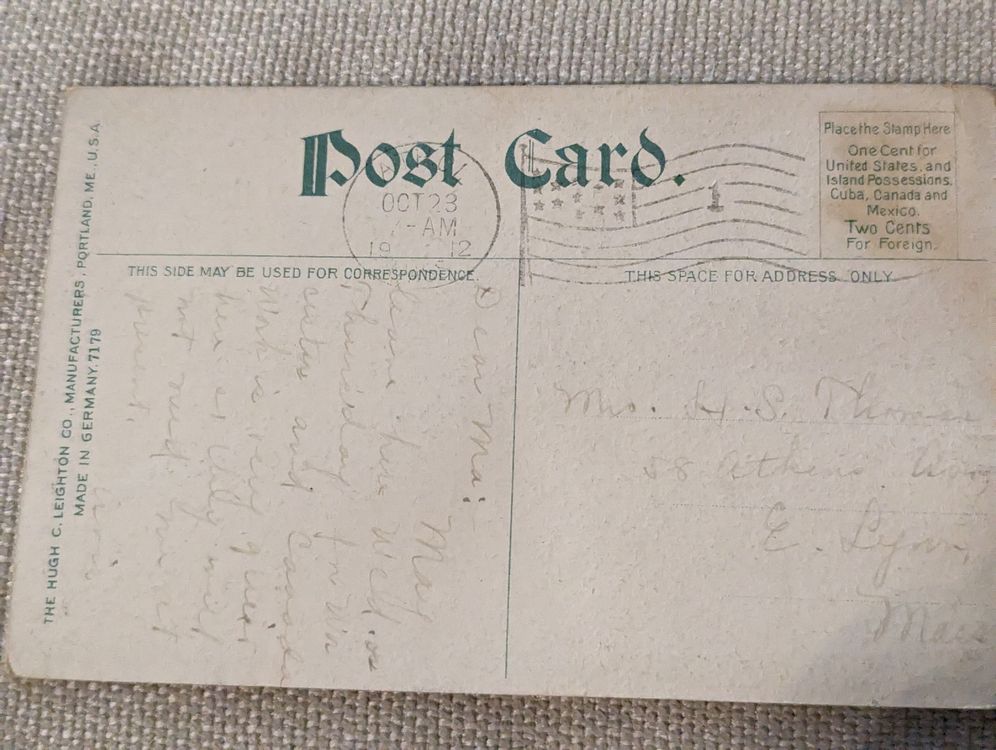 Post Card.
OCT 23
-AM
19 12
1
Place the Stamp Here
One Cent for
United States, and
Island Possessions,
Cuba, Canada and
Mexico.
Two Cents
For Foreign.
THIS SIDE MAY BE USED FOR CORRESPONDENCE.
THIS SPACE FOR ADDRESS ONLY
THE HUGH C. LEIGHTON CO., MANUFACTURERS, PORTLAND, ME., U.S.A.
MADE IN GERMANY. 7179
Dear Ma:- May
leave here Wed. or
Thursday for
and Canada
Work is very quiet
here &
not
Mrs. H. S. Thomas
58 Athens
E. Lynn,
Mass